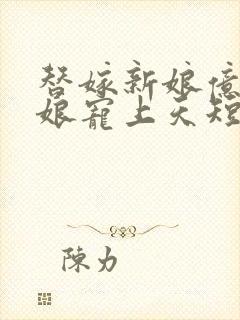 替嫁新娘億
娘寵上天短
陳力